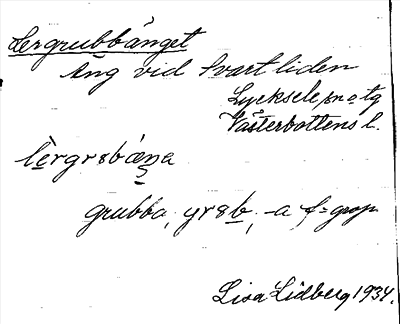 Lergrubbänget
Äng vid Svartliden
Lycksele sn o tg
Västerbottens l.
lèrgrsbæŋa
grubba, grsb, -a f = grop
Lisa Lidberg 1934.